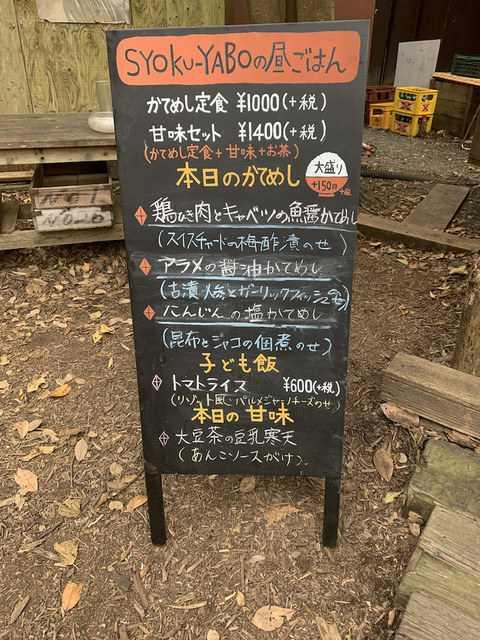 SYOKU-YABOの昼ごはん
かてめし定食 ¥1000(+税)
甘味セット ¥1400(+税)
(かてめし定食+甘味+お茶)
本日のかてめし
大盛り
+150円
鶏ひき肉とキャベツの魚醤かてめし
(スイスチャードの梅酢漬のせ)
アラメの醤油かてめし
(古漬人参とガーリックフィッシュ
にんじんの塩かてめし
(昆布とジャコの佃煮のせ)
子ども飯
トマトライス ¥600(+税)
(リゾット風・パルメジャーノチーズのせ)
本日の甘味
大豆茶の豆乳寒天
(あんこソースがけ)